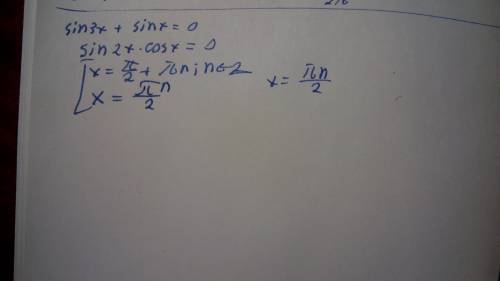 sin3x + sinx = 0
sin2x · cosx = 0
[ x = π/2 + πn; n∈Z
x = πn/2
x = πn/2